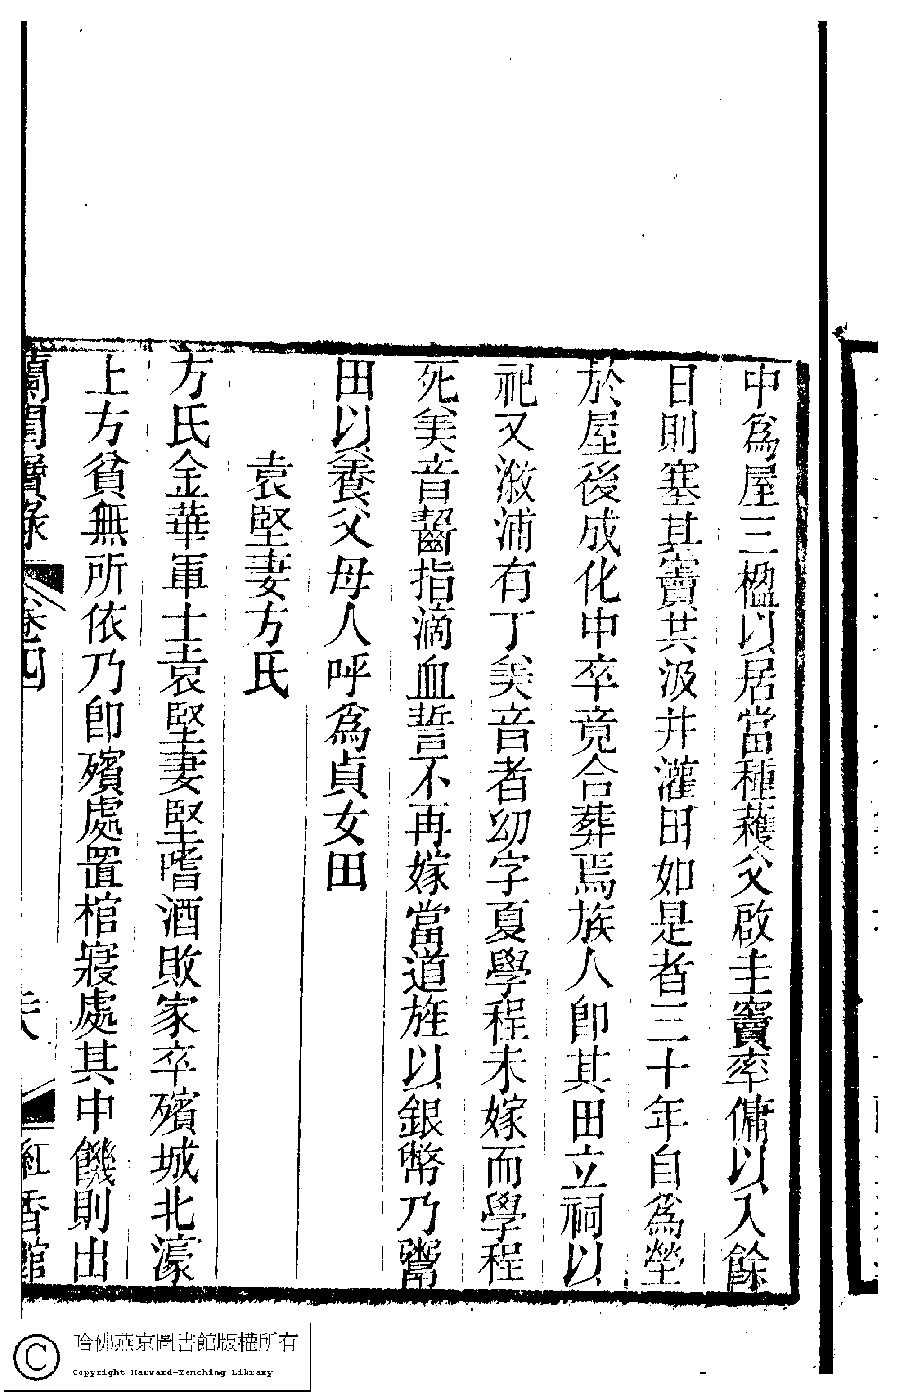 中為屋三楹以居當種蓺父啟圭竇率傭以入餘
日則塞其竇共汲井灌田如是者三十年自為塋
於屋後成化中卒竟合葬焉族人即其田立祠以
祀又澉浦有丁美音者幼字夏學程未嫁而學程
死美音齧指滴血誓不再嫁當道旌以銀幣乃鬻
田以養父母人呼為貞女田
袁堅妻方氏
方氏金華軍士袁堅妻堅嗜酒敗家卒殯城北濠
上方貧無所依乃即殯處置棺寢處其中饑則出
蘭閨寶錄 卷四 紅香館
哈佛燕京圖書館版權所有
Copyright Harvard-Yenching Library